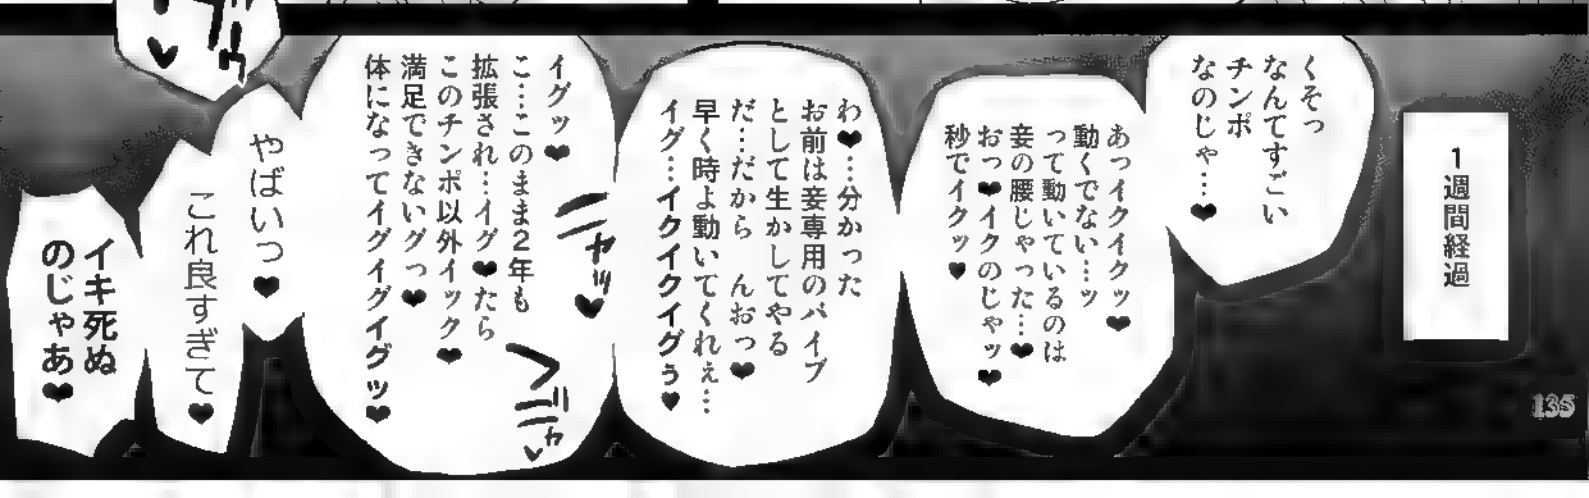 1週間経過
くそっ
なんてすごい
チンポ
なのじゃ…♥
あっイクイクッ♥
動くでない…ッ
って動いているのは
妾の腰じゃった…♥
おっ♥イクのじゃッ♥
秒でイクッ♥
わ♥…分かった
お前は妾専用のバイブ
として生かしてやる
だ…だから んおっ♥
早く時よ動いてくれぇ…
イグ…イクイクイグぅ♥
イグッ♥
こ…このまま2年も
拡張され…イグ♥たら
このチンポ以外イック♥
満足できないグっ♥
体になってイグイグイグッ♥
やばいっ♥
これ良すぎて♥
イキ死ぬ
のじゃあ♥
135